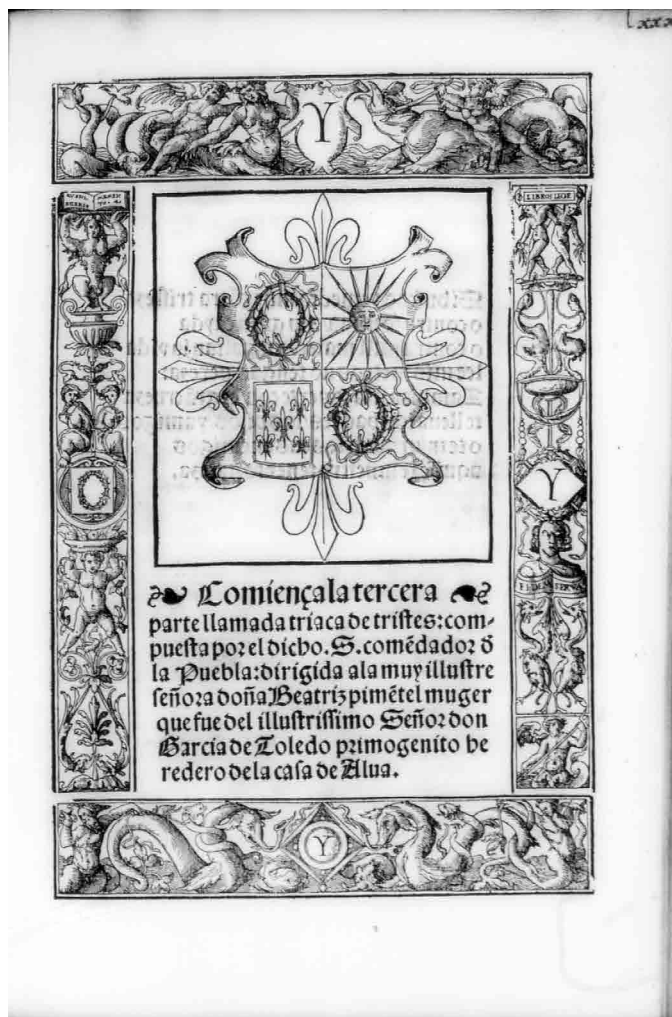 lxxx
Y
LIBER HOR
Y
Y
Comiença la tercera
parte llamada triaca de tristes: com-
puesta por el dicho. S. comẽdador ð
la Puebla: dirigida ala muy illustre
señora doña Beatriz pimẽtel muger
que fue del illustrissimo Señor don
Garcia de Toledo primogenito he
redero dela casa de Alua.